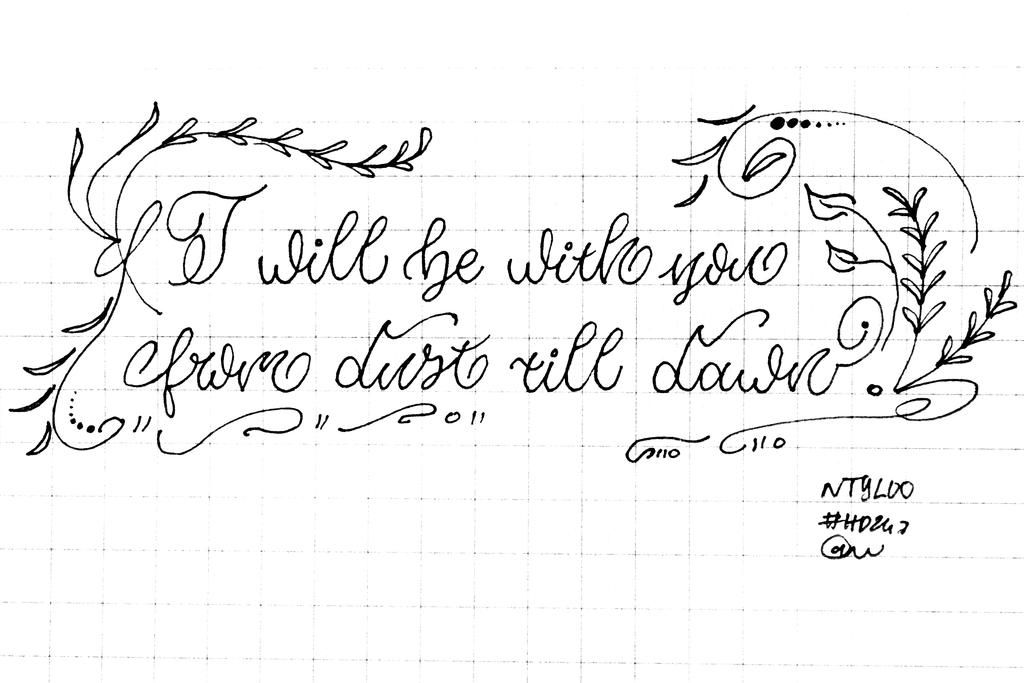 I will be with you
from dust till dawn.
NTYLOO
#HD247
@w